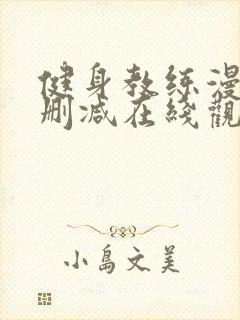 健身教练漫
删减在线觀
小島文美